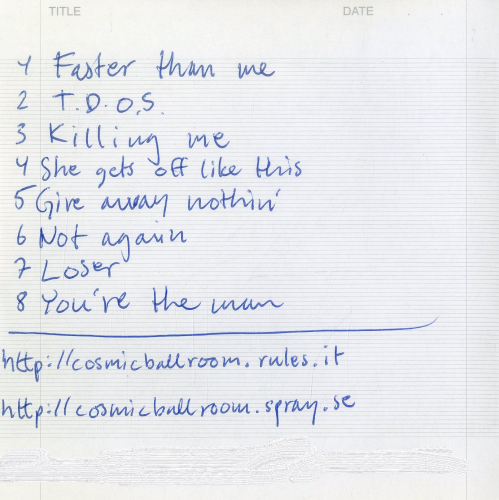 TITLE DATE
1 Faster than me
2 T.D.O.S.
3 Killing me
4 She gets off like this
5 Give away nothin'
6 Not again
7 Loser
8 You're the man
http://cosmicballroom.rules.it
http://cosmicballroom.spray.se